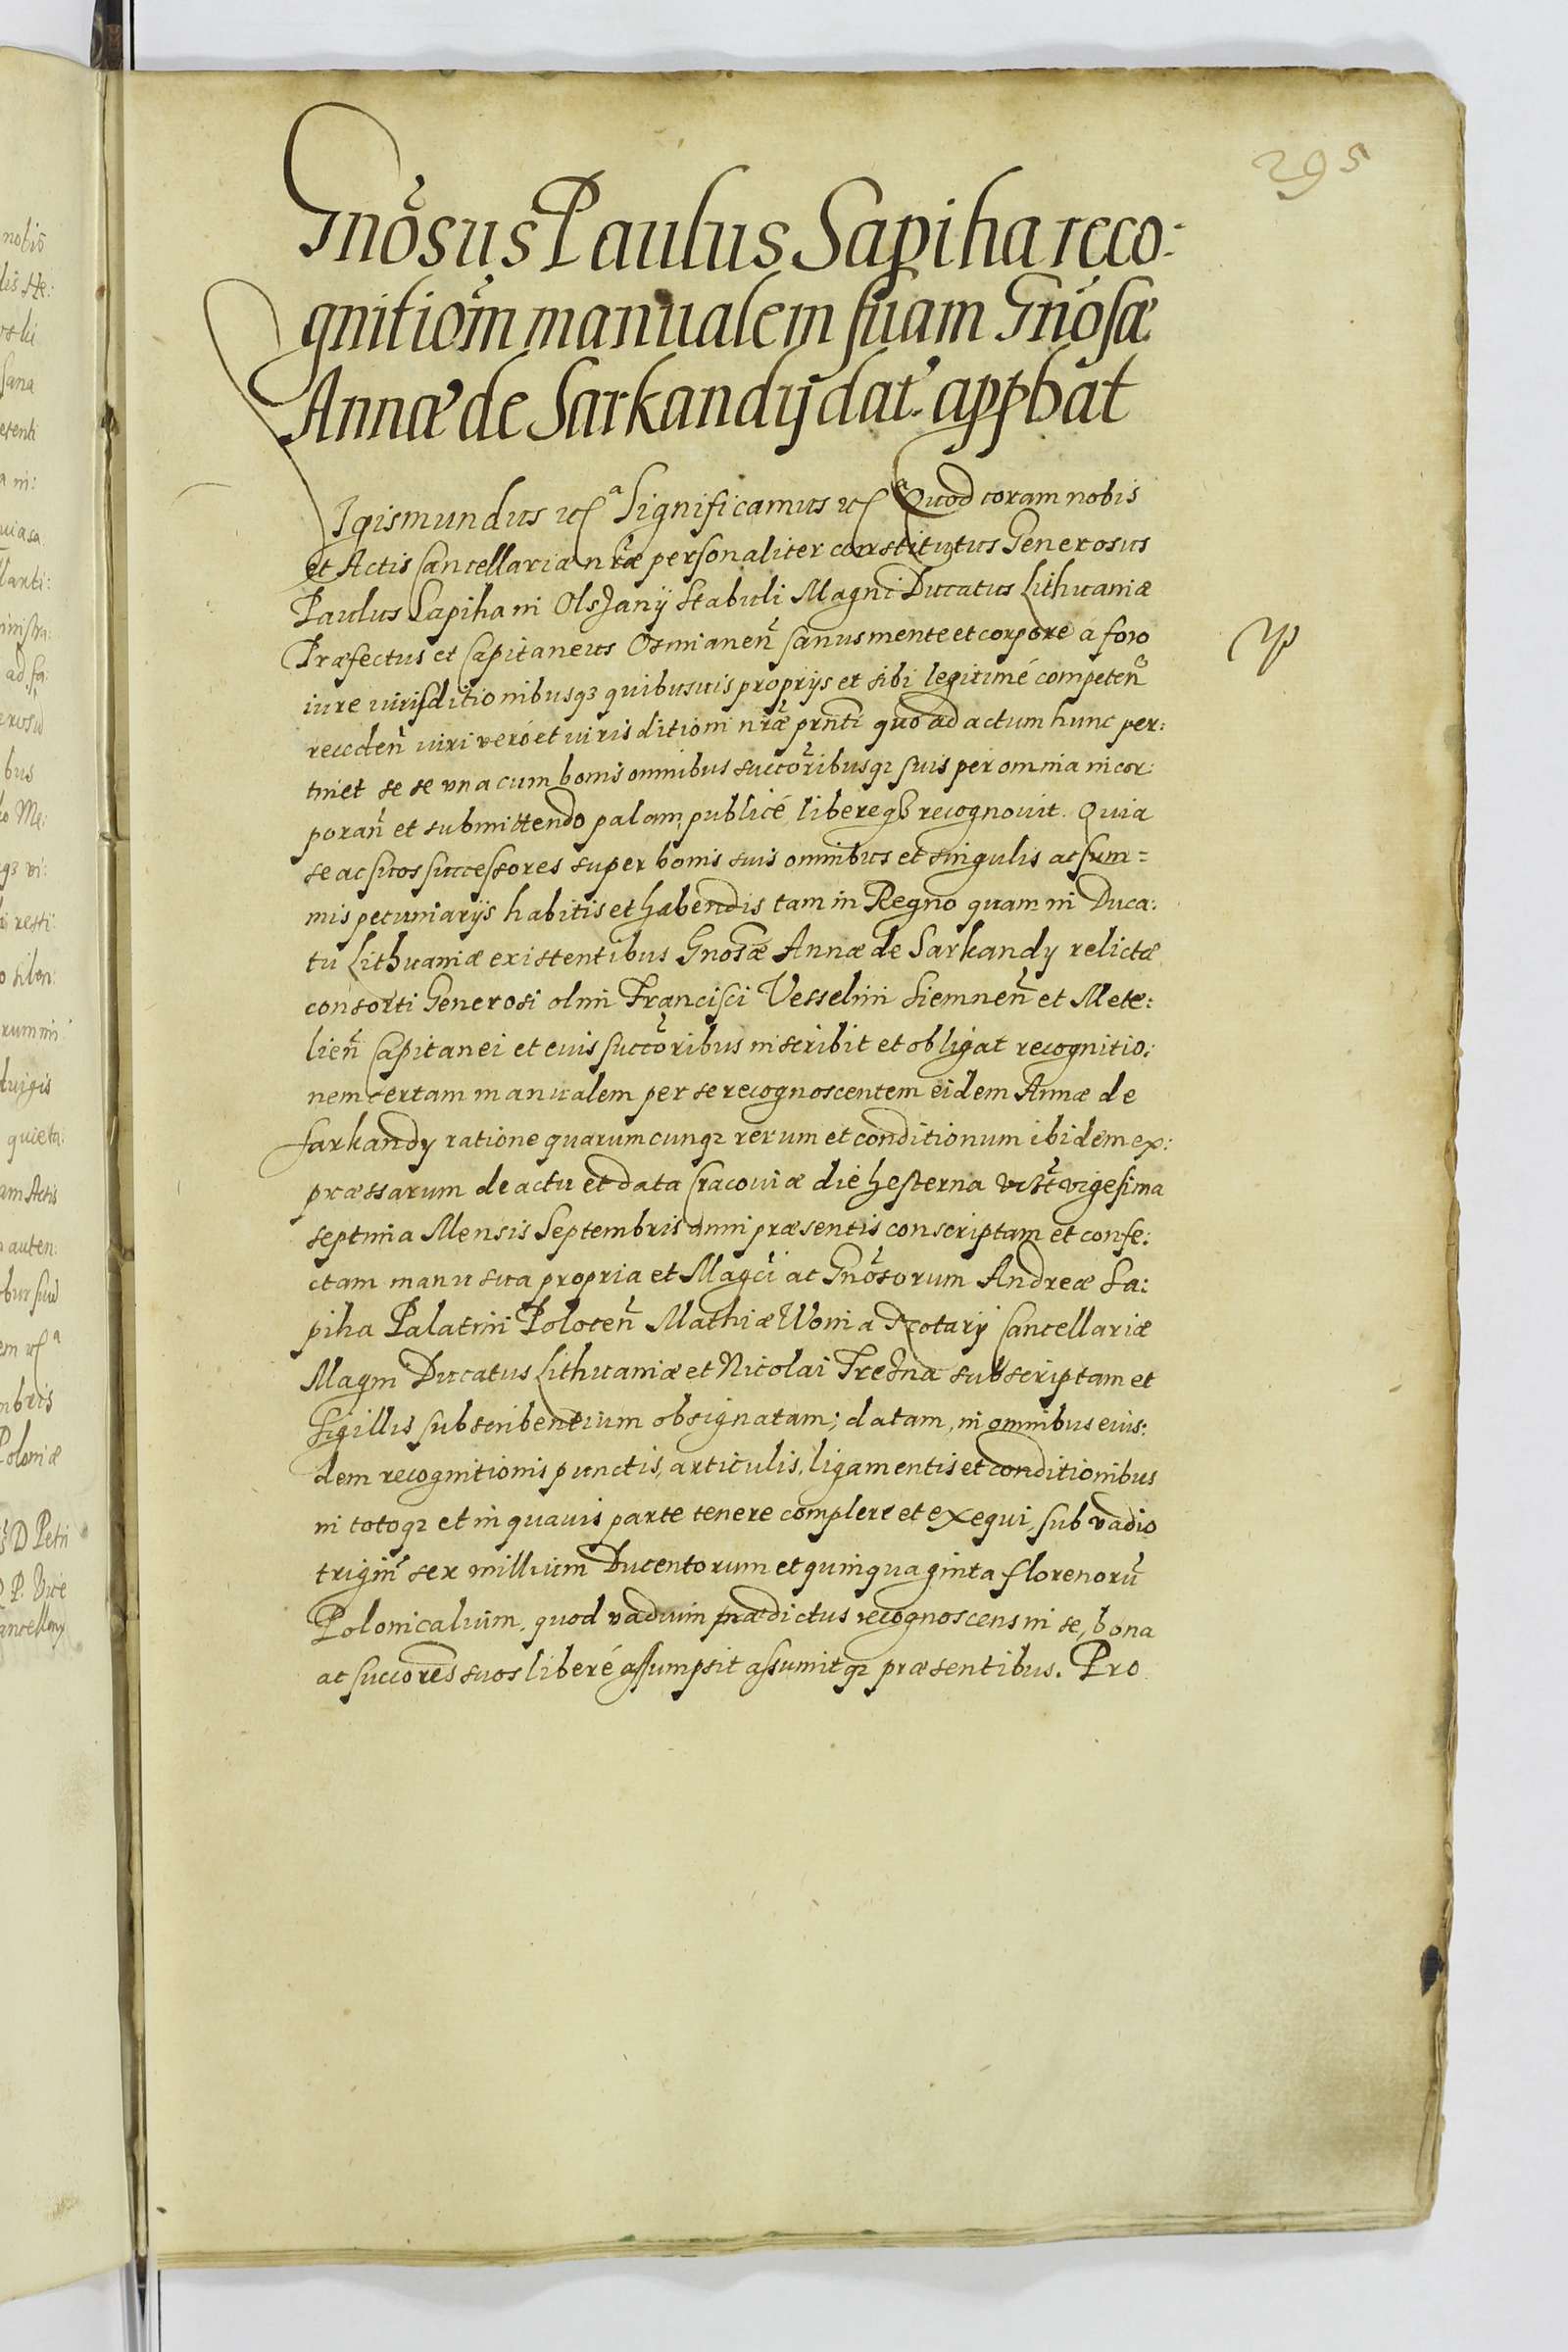 295
Gnõsus Paulus Sapiha reco:
gnitiom̃ manualem suam Gnõsæ
Annæ de Sarkandÿ dat. appbat
Sigismundus etc. Significamus etc. Quod coram nobis
et Actis Cancellariæ nr̃æ personaliter constitutus Generosus
Paulus Sapiha in Olszanÿ Stabuli Magni Ducatus Lithuaniæ
Præfectus et Capitaneus Osmianeñ sanus mente et corpore a foro
iure iurisditionibusq3 quibusuis proprÿs et sibi legitimé competeñ
recedeñ iuri veró et iurisditioni nr̃æ prñti quo ad actum hunc per:
tinet se se vna cum bonis omnibus succõribusq3 suis per omnia incor:
porañ et submittendo palam, publicé, libereq3 recognouit. Quia
se ac suos successores super bonis suis omnibus et singulis ac sum=
mis pecuniarÿs habitis et habendis tam in Regno quam in Duca:
tu Lithuaniæ existentibus Gnosæ Annæ de Sarkandy relictæ
consorti Generosi olim Francisci Vesselini Siemneñ et Mete:
lieñ Capitanei et eius succõribus inscribit et obligat recognitio:
nem certam manualem per se recognoscentem eidem Annæ de
Sarkandy ratione quarumcunq3 rerum et conditionum ibidem ex:
præssarum de actu et data Cracouiæ die hesterna vid̃t vigesima
septima Mensis Septembris anni præsentis conscriptam et confe:
ctam manu sua propria et Magci ac Gnõsorum Andreæ Sa:
piha Palatini Poloceñ Mathiæ Woina Notarÿ Cancellariæ
Magni Ducatus Lithuaniæ et Nicolai Trezna subscriptam et
Sigillis subscribentium obsignatam; datam, in omnibus eius:
dem recognitionis punctis, articulis, ligamentis et conditionibus
in totoq3 et in quauis parte tenere complere et exequi, sub vadio
trigiñ sex millium Ducentorum et quinquaginta florenorũ
Polonicalium, quod vadium prædictus recognoscens in se, bona
ac succores suos liberé assumpsit assumitq3 præsentibus. Pro